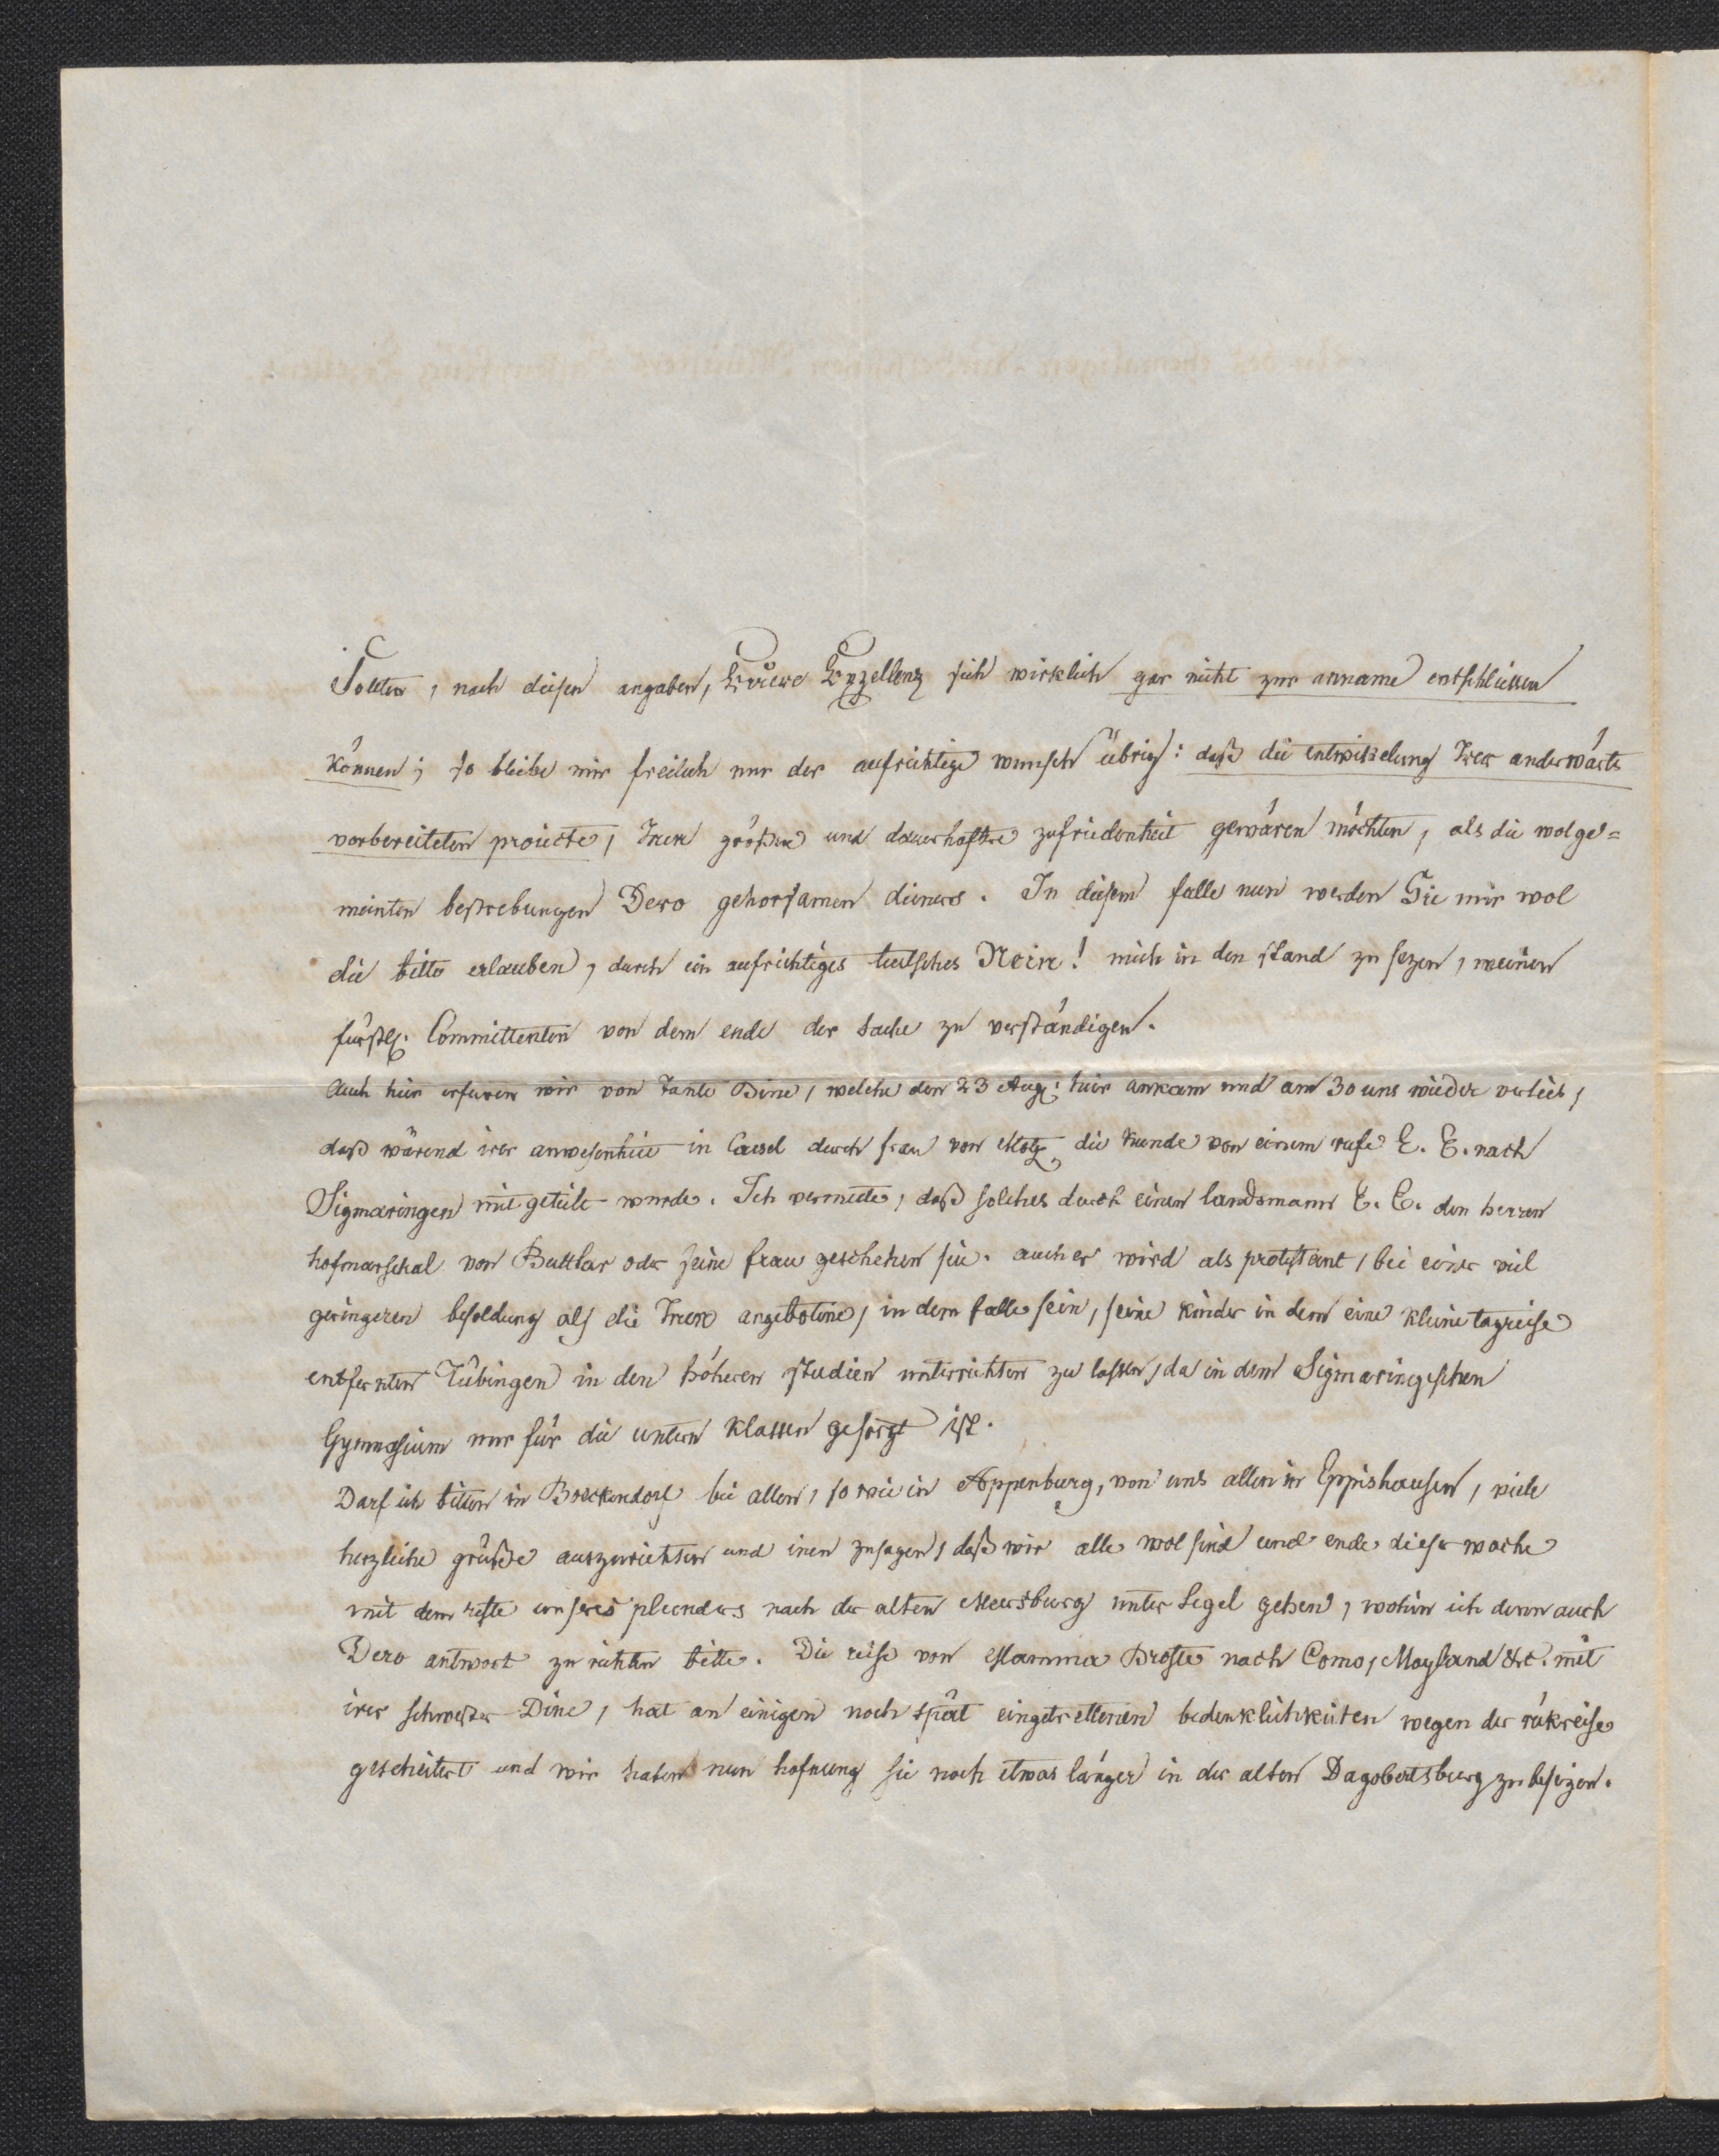 Sollten, nach diesen angaben, Euere Exzellenz sich wirklich gar nicht zur anname entschliessen
können; so bleibt mir freilich nur der aufrichtige wunsch übrig: daß die entwikelung Irer anderwärts
vorbereiteten projecte, Inen größere und dauerhaftere zufriedenheit gewären möchten, als die wolge=
meinten bestrebungen Dero gehorsamen dieners. In diesem falle nun werden Sie mir wol
die bitte erlauben, durch ein aufrichtiges teutsches Nein! mich in den stand zu sezen, meinen
fürstl. Committenten von dem ende der sache zu verständigen.
Auch hier erfuren wir von Tante Dine, welche den 23 Aug. hier ankam und am 30 uns wieder verlies,
daß wärend irer anwesenheit in Cassel durch frau von Motz die kunde von einem rufe E. E. nach
Sigmaringen mitgeteilt wurde. Ich vermute, daß solches durch einen landsmann E. E. den herren
hofmarschal von Buttlar oder seine frau geschehen sie. auch er wird als protestant, bei einer viel
geringeren besoldung als die Inen angebotene, in dem falle sein, seine kinder in dem eine kleine tagreise
entfernten Tübingen in den höheren studien unterrichten zu lassen, da in dem Sigmaringischen
Gymnasium nur für die untern klassen gesorgt ist.
Darf ich bitten in Boeckendorf bei allen, so wie in Appenburg, von uns allen in Eppishausen, viele
herzliche grüße auszurichten und inen zusagen, daß wir alle wol sind und ende dieser woche
mit dem reste unseres plunders nach der alten Meersburg unter Segel gehen, wohin ich denn auch
Dero antwort zu richten bitte. Die reise von Mamma Droste nach Como, Mayland etc. mit
irer schwester Dine, hat an einigen noch spät eingetrettenen bedenklichkeiten wegen der rükreise
gescheitert und wir haben nun hofnung sie noch etwas länger in der alten Dagobertsburg zu besizen.